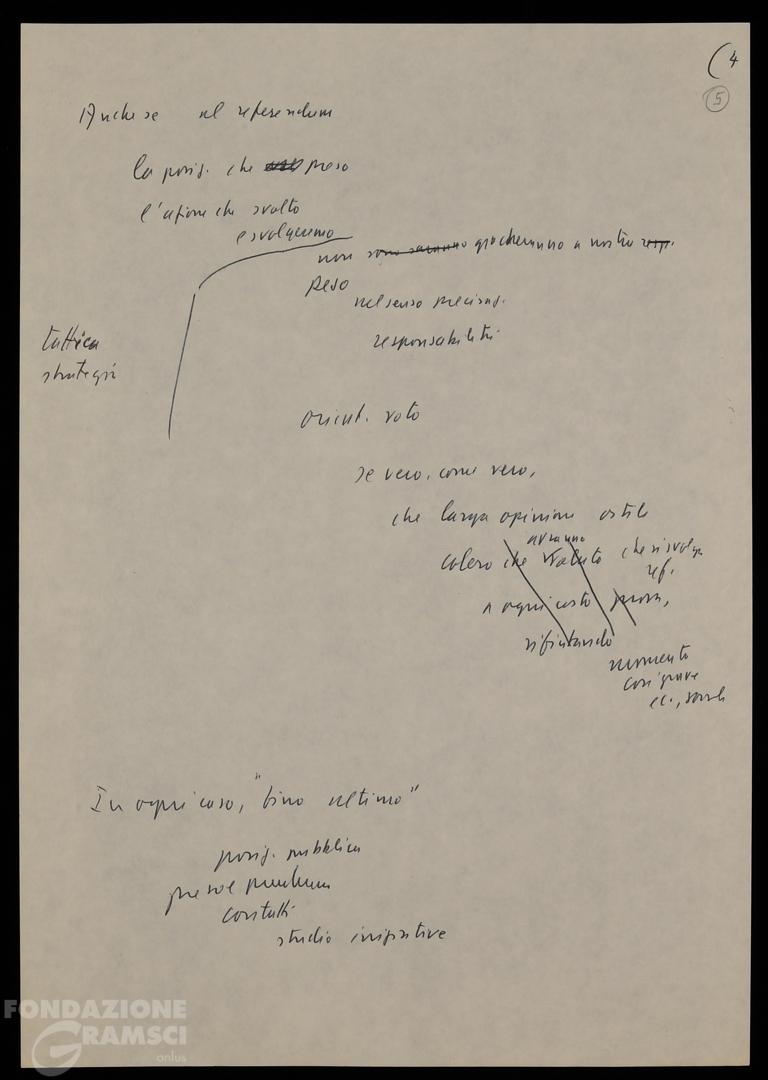 (4
5
Anche se al referendum
la posiz. che preso
l'azione che svolto
e svolgeremo
non sono saranno giocheranno a nostro resp.
peso
nel senso precisaz.
responsabilità
tattica
strategia
orient. voto
se vero, come vero,
che larga opinione ostile
avranno
coloro che voluto che si svolga
ref.
a ogni costo prova,
rifiutando
momento
così grave
ec., sociale
In ogni caso, "fino ultimo"
posiz. pubblica
prese
contatti
studio iniziative
FONDAZIONE
GRAMSCI
onlus